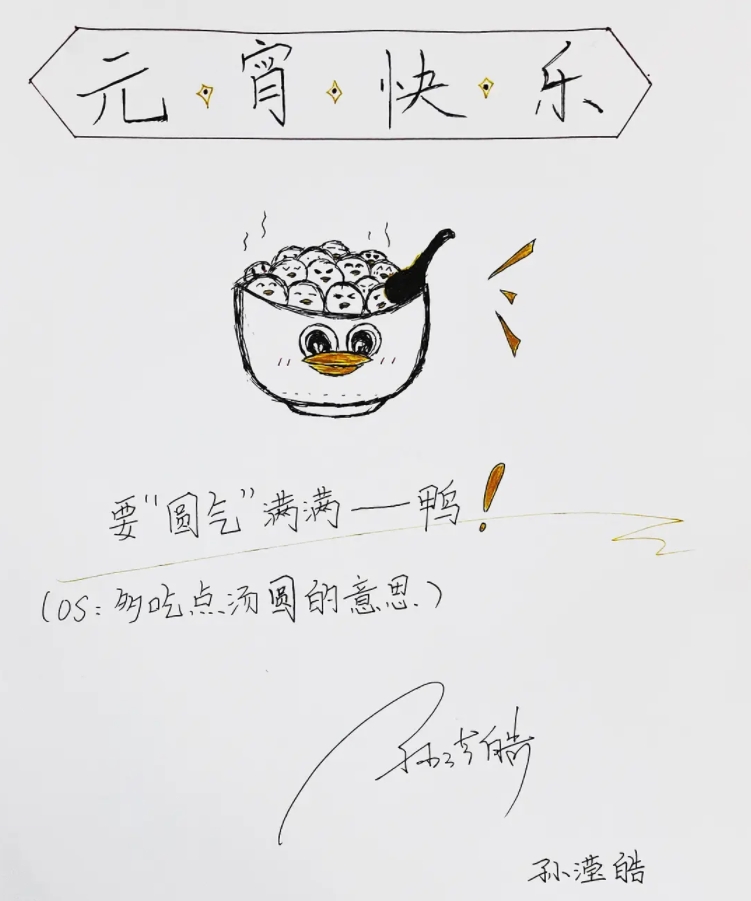 元宵快乐
要“圆气”满满——鸭！
（OS：多吃点汤圆的意思.）
孙滢皓
孙滢皓